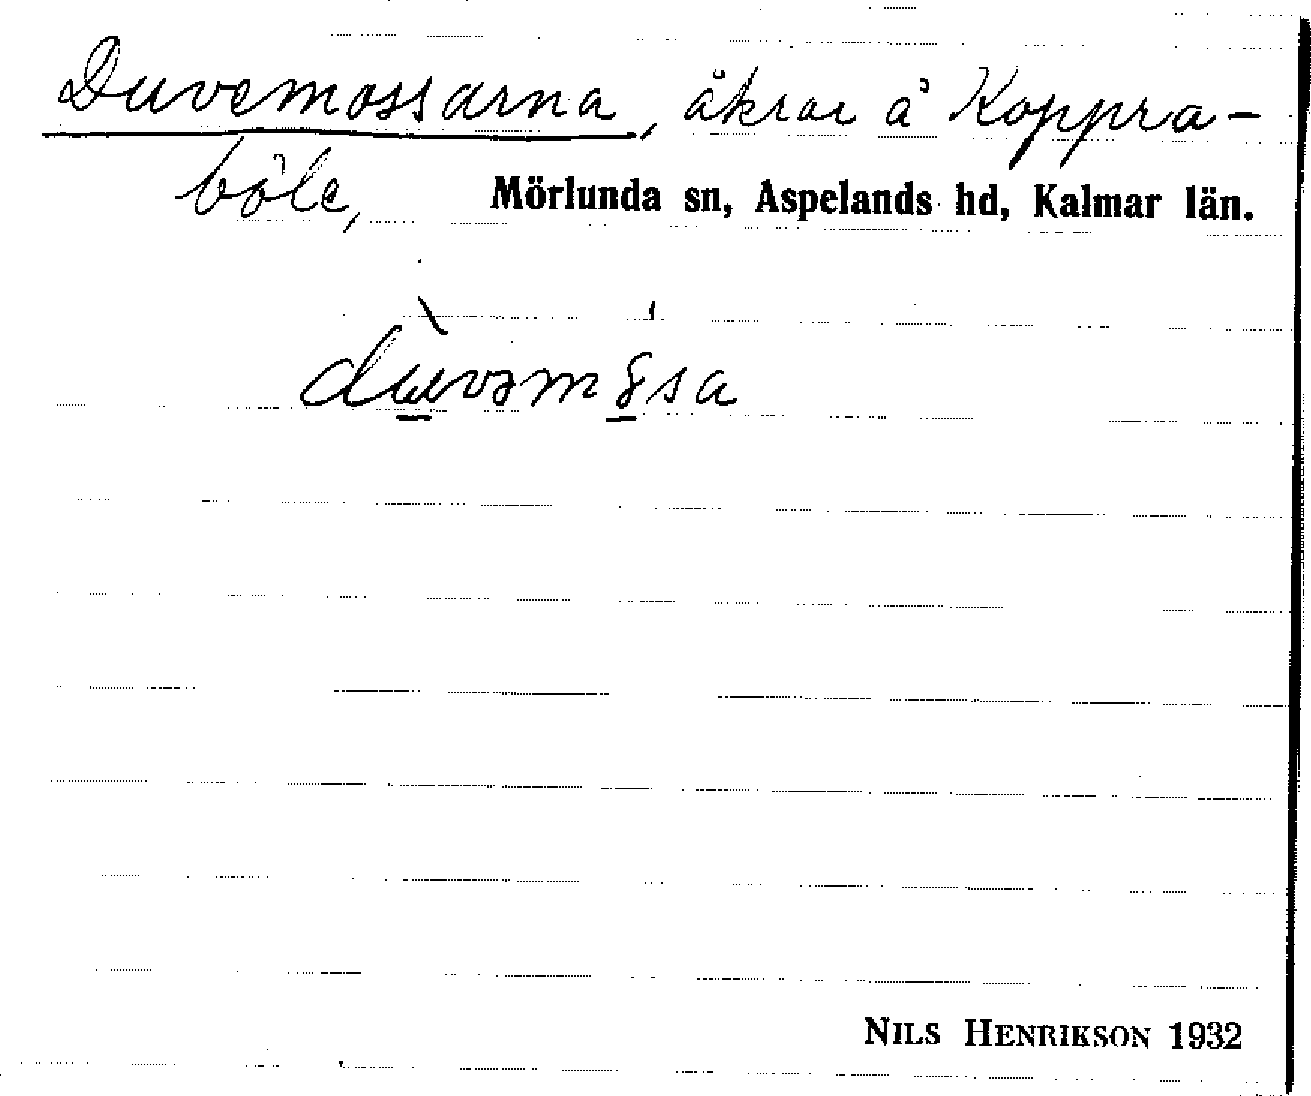 Duvemossarna, åkrar å Koppra-
böle, Mörlunda sn, Aspelands hd, Kalmar län.
NILS HENRIKSON 1932